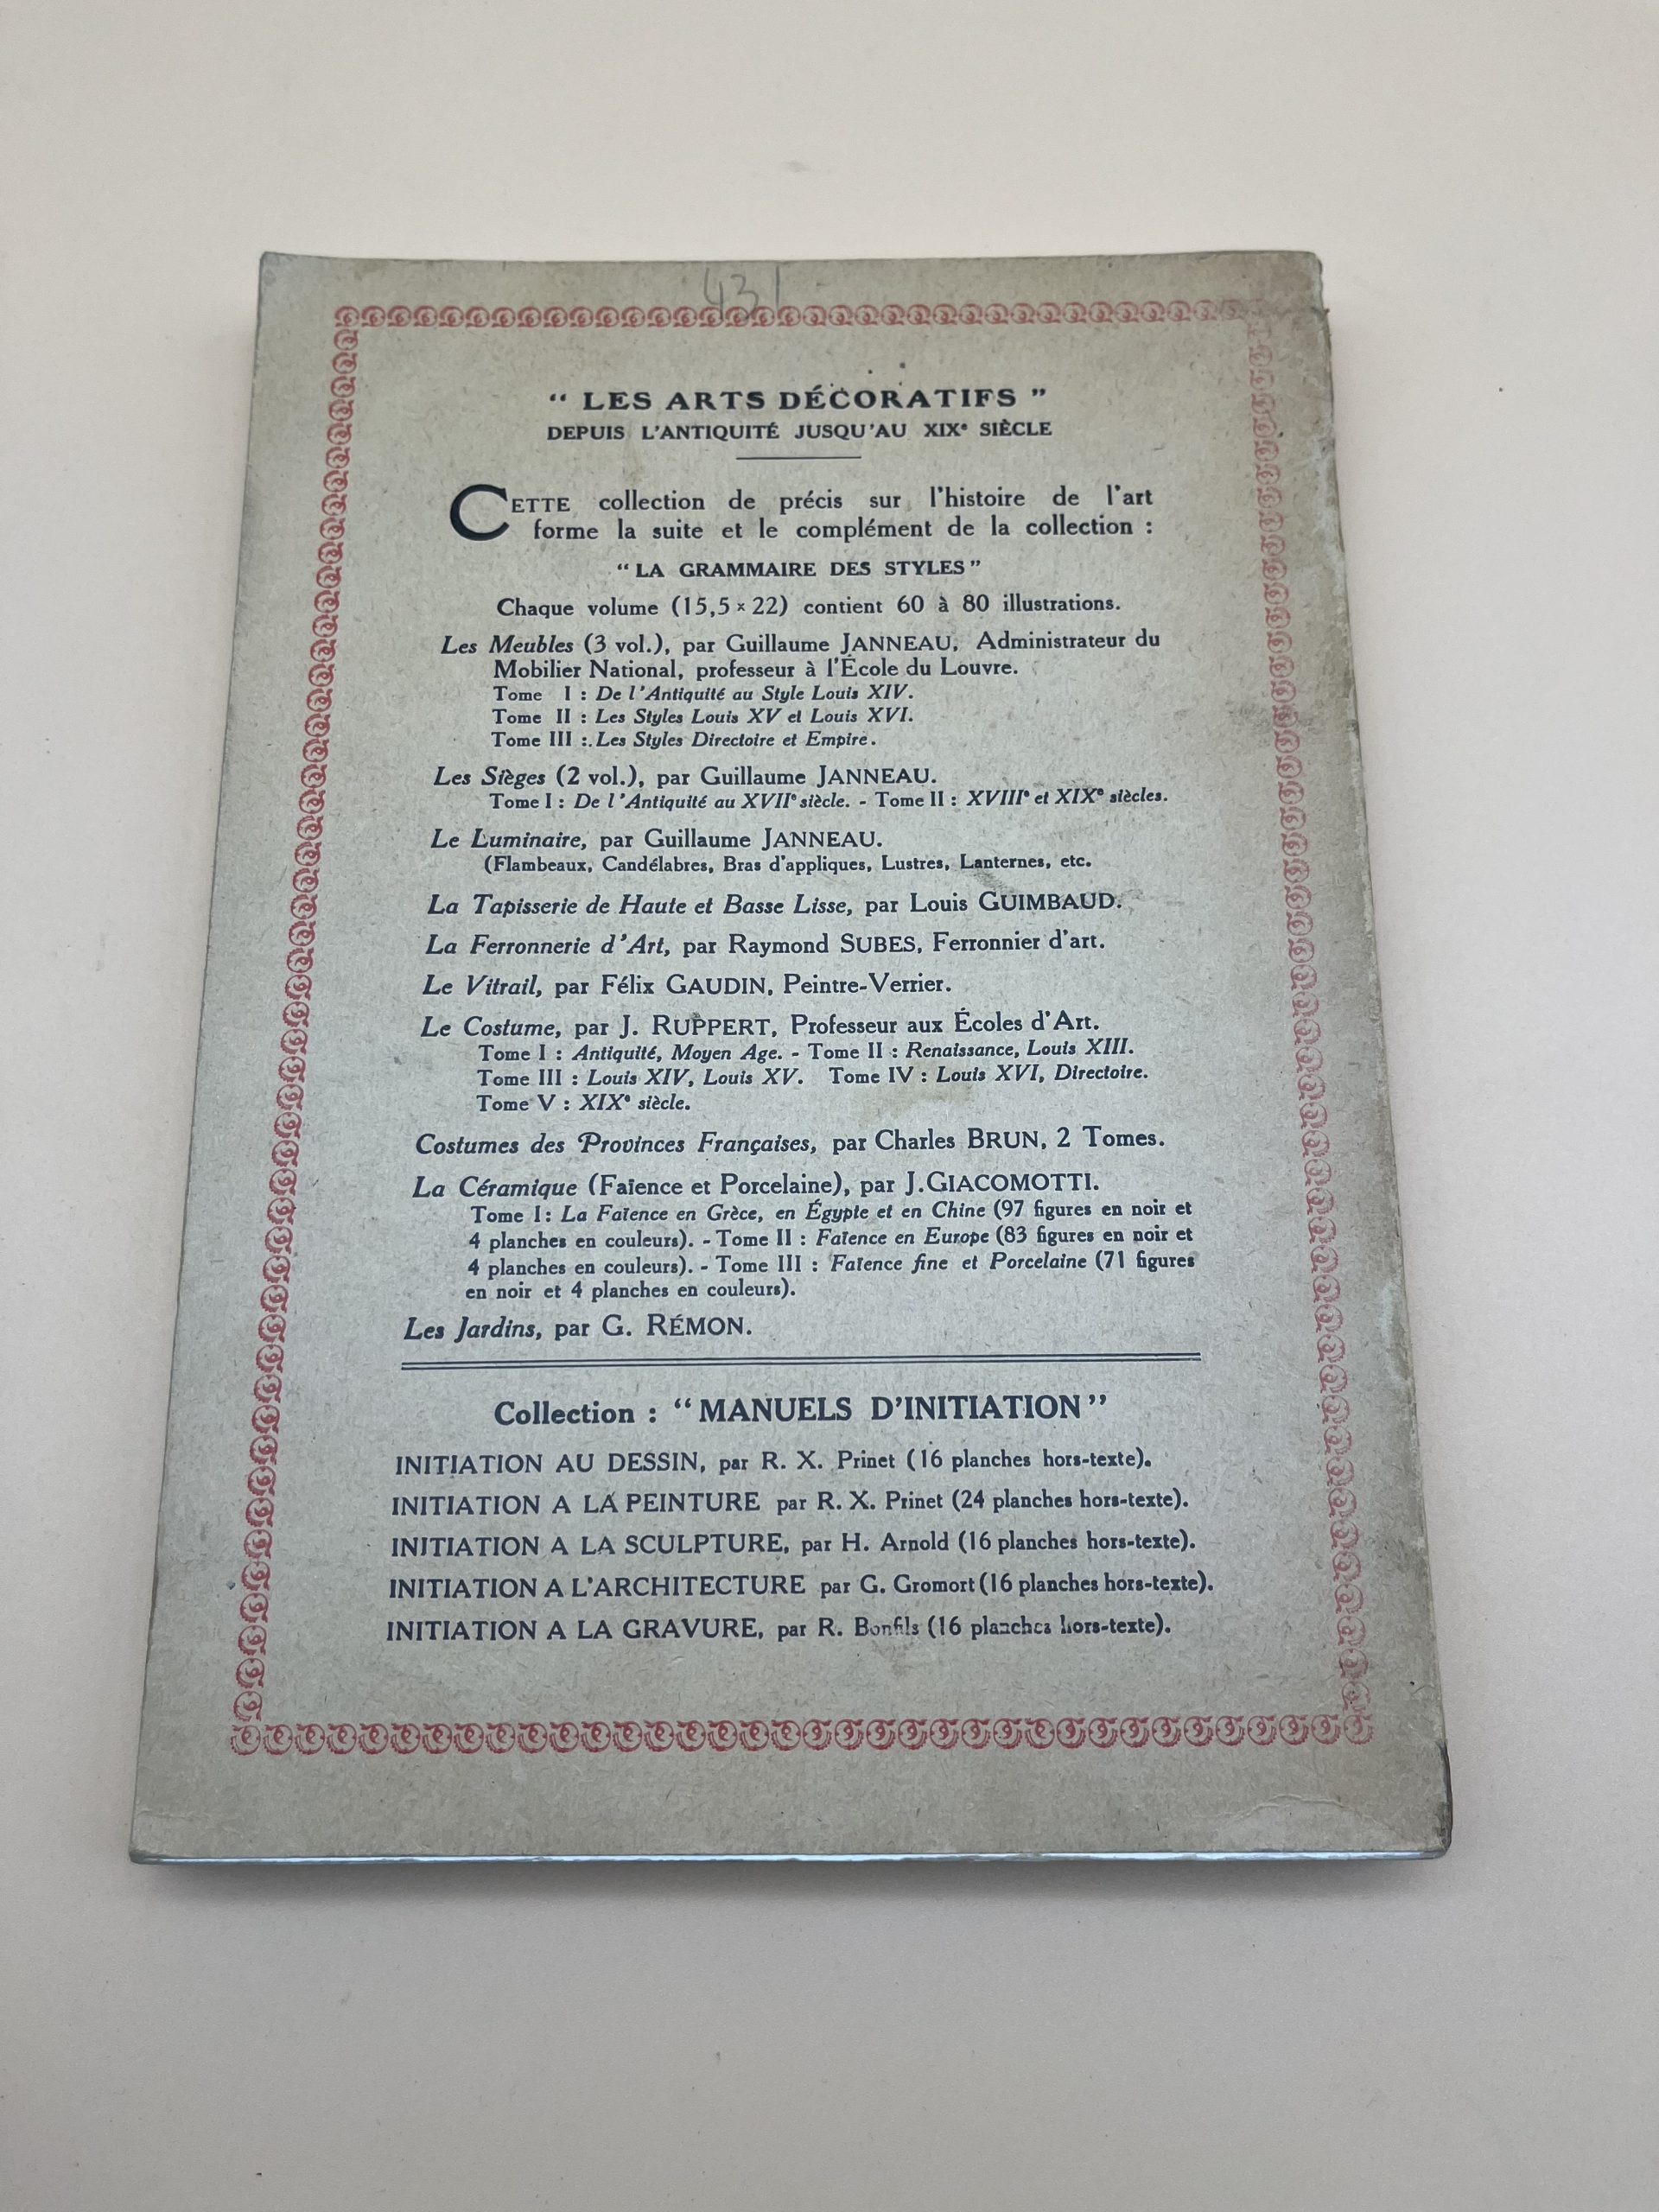 431
“ LES ARTS DÉCORATIFS ”
DEPUIS L'ANTIQUITÉ JUSQU'AU XIXe SIÈCLE
CETTE collection de précis sur l'histoire de l'art
forme la suite et le complément de la collection :
“ LA GRAMMAIRE DES STYLES ”
Chaque volume (15,5 × 22) contient 60 à 80 illustrations.
Les Meubles (3 vol.), par Guillaume JANNEAU, Administrateur du
Mobilier National, professeur à l'École du Louvre.
Tome I : De l'Antiquité au Style Louis XIV.
Tome II : Les Styles Louis XV et Louis XVI.
Tome III : Les Styles Directoire et Empire.
Les Sièges (2 vol.), par Guillaume JANNEAU.
Tome I : De l'Antiquité au XVIIe siècle. - Tome II : XVIIIe et XIXe siècles.
Le Luminaire, par Guillaume JANNEAU.
(Flambeaux, Candélabres, Bras d'appliques, Lustres, Lanternes, etc.
La Tapisserie de Haute et Basse Lisse, par Louis GUIMBAUD.
La Ferronnerie d'Art, par Raymond SUBES, Ferronnier d'art.
Le Vitrail, par Félix GAUDIN, Peintre-Verrier.
Le Costume, par J. RUPPERT, Professeur aux Écoles d'Art.
Tome I : Antiquité, Moyen Age. - Tome II : Renaissance, Louis XIII.
Tome III : Louis XIV, Louis XV. Tome IV : Louis XVI, Directoire.
Tome V : XIXe siècle.
Costumes des Provinces Françaises, par Charles BRUN, 2 Tomes.
La Céramique (Faïence et Porcelaine), par J. GIACOMOTTI.
Tome I : La Faïence en Grèce, en Égypte et en Chine (97 figures en noir et
4 planches en couleurs). - Tome II : Faïence en Europe (83 figures en noir et
4 planches en couleurs). - Tome III : Faïence fine et Porcelaine (71 figures
en noir et 4 planches en couleurs).
Les Jardins, par G. RÉMON.
Collection : “ MANUELS D'INITIATION ”
INITIATION AU DESSIN, par R. X. Prinet (16 planches hors-texte).
INITIATION A LA PEINTURE par R. X. Prinet (24 planches hors-texte).
INITIATION A LA SCULPTURE, par H. Arnold (16 planches hors-texte).
INITIATION A L'ARCHITECTURE par G. Gromort (16 planches hors-texte).
INITIATION A LA GRAVURE, par R. Bonfils (16 planches hors-texte).